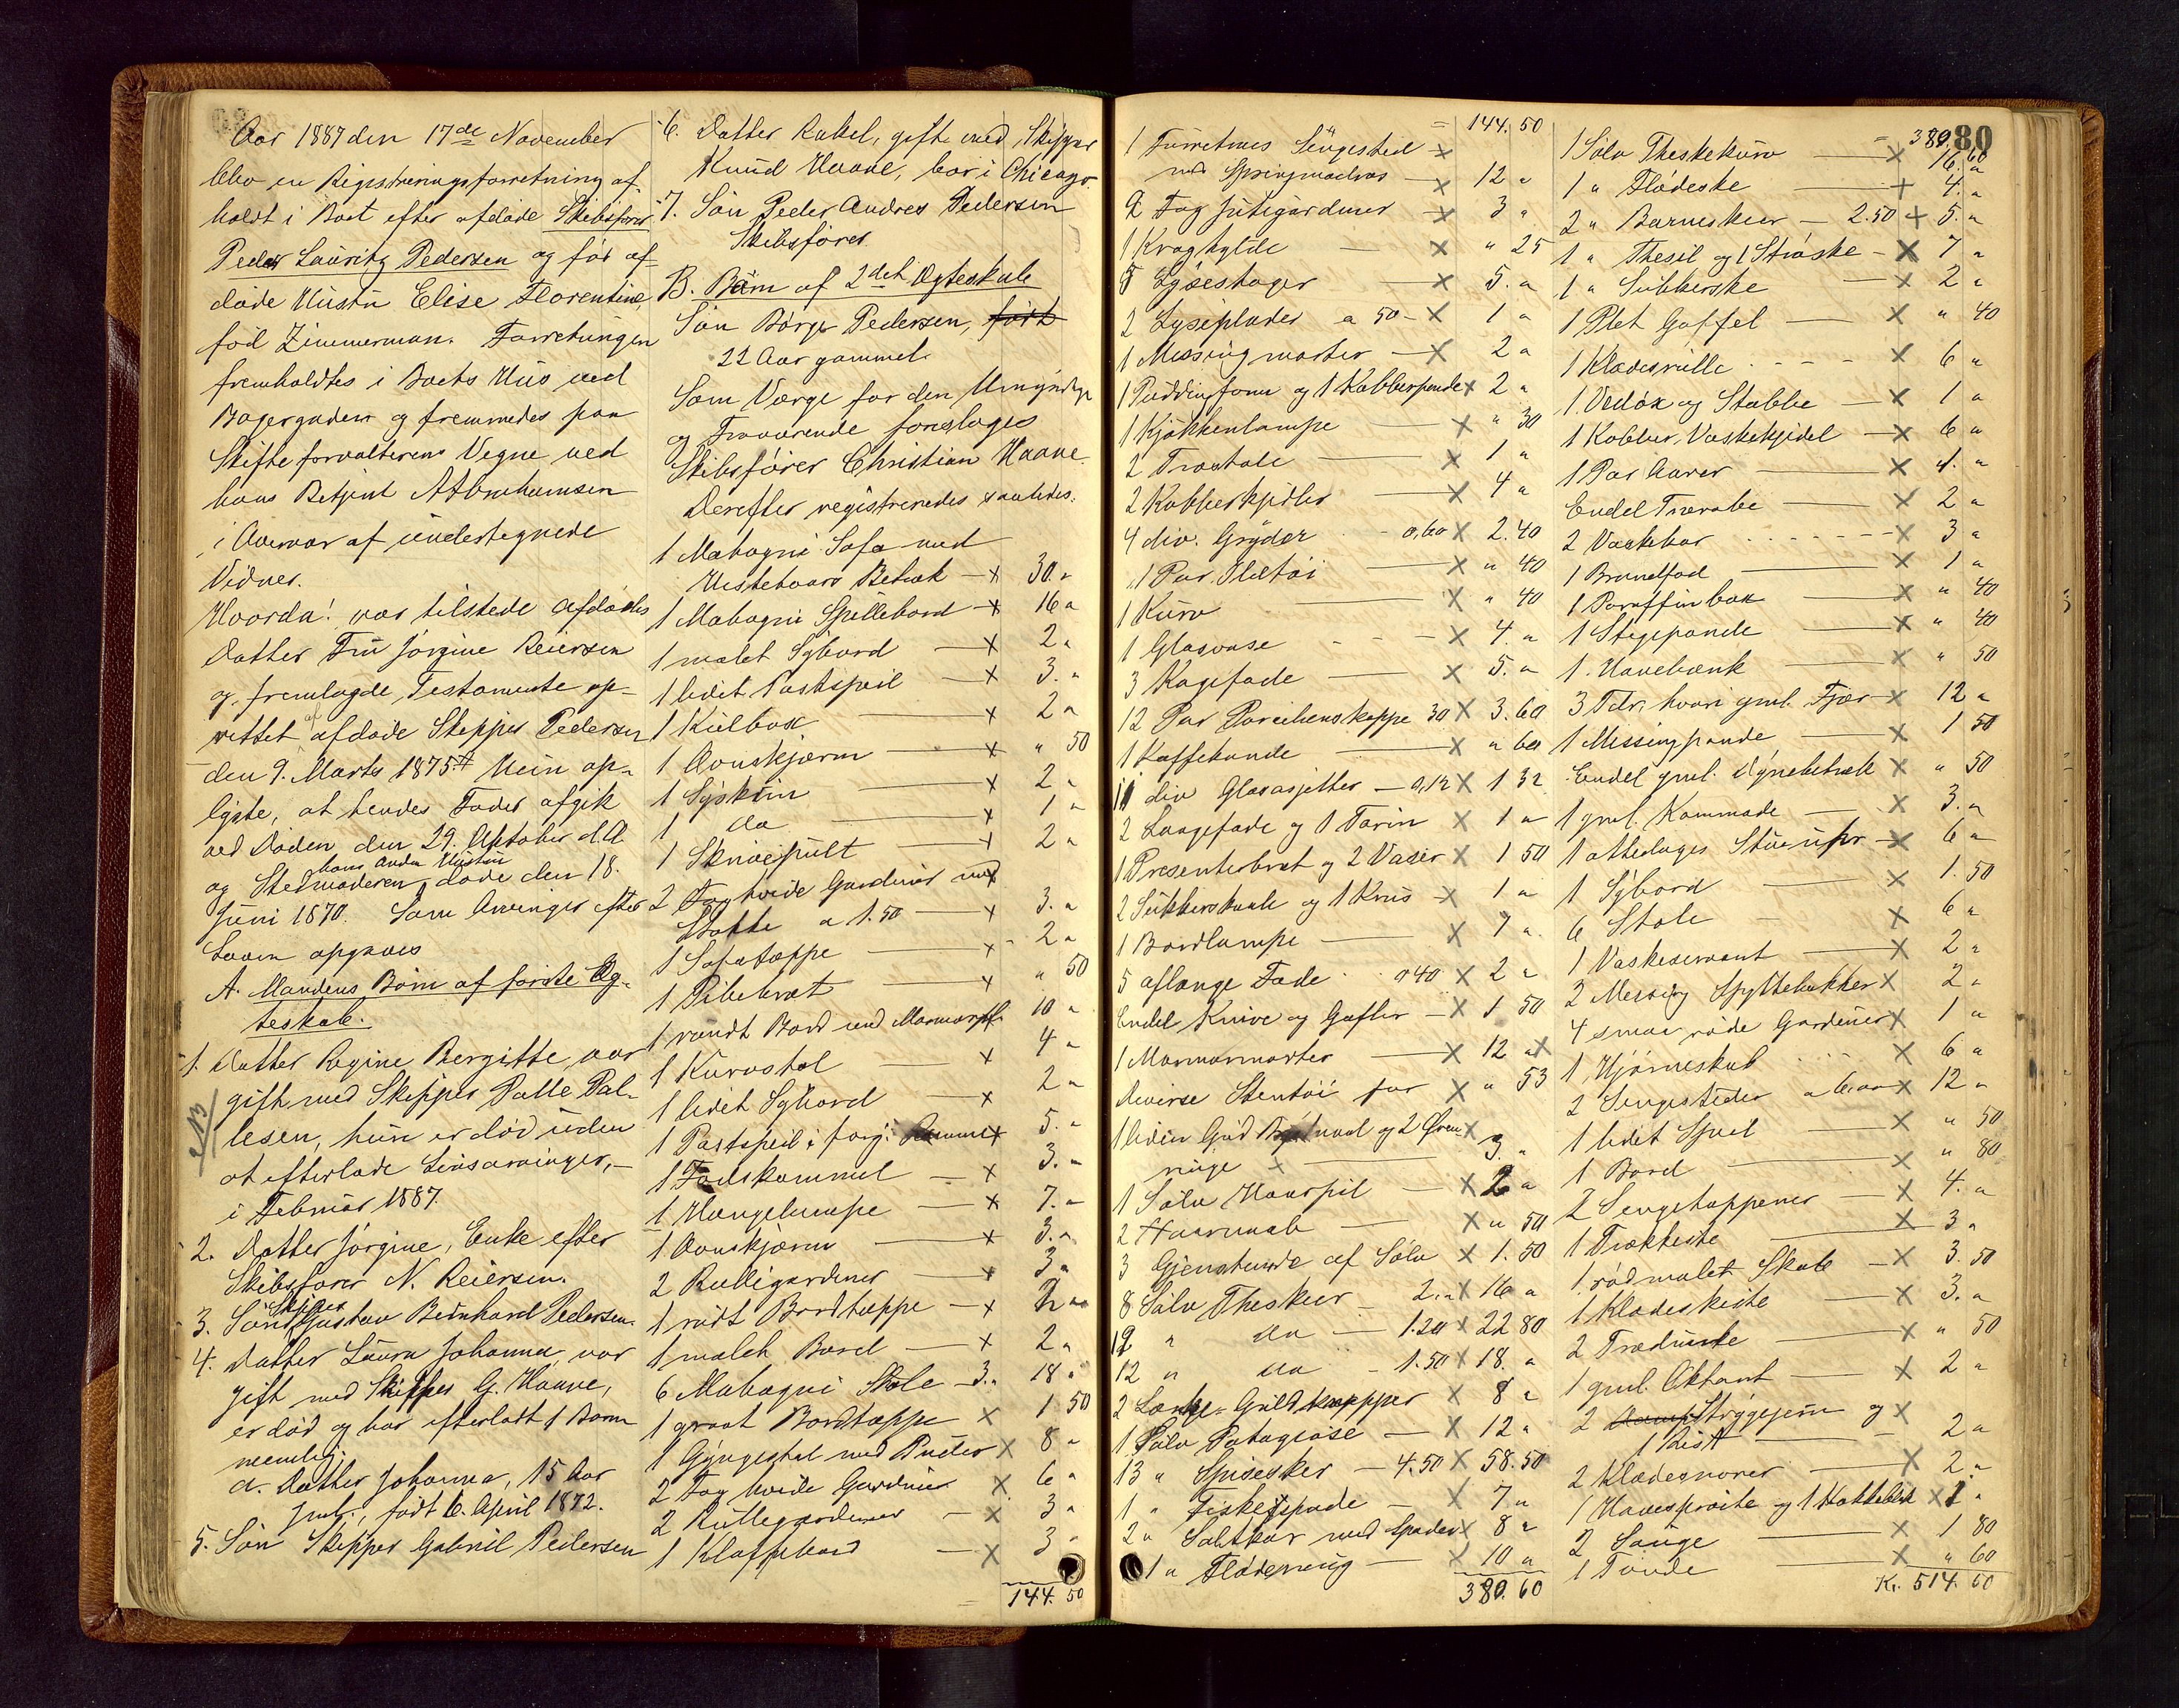 Aar 1887 den 17de November
blev en Registreringsforretning af-
holdt i Boet efter afdøde Skibsfører
Peder Lauritz Pedersen og før af-
døde Hustru Elise Florentine,
fød Zimmerman. Forretningen
fremholdtes i Boets Hus ved
Bagergaden og fremmedes paa
Skifteforvalterens Vegne ved
hans Betjent A Abrahamsen
i Overvær af undertegnede
Vidner.
Hvorda! var tilstede afdødes
Datter Fru Jørgine Reiersen
og fremlagde Testamente op-
rettet af afdøde Skipper Pedersen
den 9. Marts 1875. Hun op-
lyste, at hendes Fader afgik
ved Døden den 29. Oktober d.A
og Stedmoderen, hans anden Hustru døde den 18.
Juni 1870. Som Arvinger efter
Loven opgaves
A. Mandens Børn af første Æg-
teskab.
1. Datter Regine Bergitte, var
gift med Skipper Palle Pal-
lesen, hun er død uden
at efterlade Livsarvinger,
i Februar 1887.
2. Datter Jørgine, Enke efter
Skibsfører N. Reiersen.
3. Søn Skipper Gustav Bernhard Pedersen.
4. Datter Laura Johanna, var
gift med Skipper G. Haave,
er død og har efterladt 1 Barn
nemlig
a. Datter Johanna, 15 Aar
gml., født 6. April 1872.
5. Søn Skipper Gabriel Pedersen
6. Datter Rakel, gift med Skipper
Knud Haave, bor i Chicago.
7. Søn Peder Andres Pedersen
Skibsfører.
B. Børn af 2det Ægteskab
Søn Børge Pedersen, født
22 Aar gammel.
Som Værge for den Umyndige
og Fraværende foresloges
Skibsfører Christian Haave.
Derefter registreredes saaledes:
1 Mahogni Sofa med
Hestehaars Betræk — x 30. "
1 Mahogni Spillebord x 16 "
1 malet Sybord — x 2 "
1 lidet Postspeil — x 3. "
1 Kulbox — x 2 "
1 Ovnskjærm — x " 50
1 Syskrin — x 2 "
1 do — x 1 "
1 Skrivepult — x 2 "
2 Fag hvide Gardiner med x
Støtte a 1.50 — x 3. "
1 Sofatæppe — x 2 "
1 Pibebræt — x " 50
1 rundt Bord med Marmorpl. 10 "
1 Kurvstol — x 4 "
1 lidet Sybord — x 2 "
1 Postspeil i forg. Ramme x 5. "
1 Fodskammel — x 3. "
1 Hængelampe — x 7. "
1 Ovnskjærm — x 3. "
2 Rullegardiner — x 3 "
1 rødt Bordtæppe — x 2 "
1 malet Bord — x 2 "
6 Mahogni Stole 3. " 18 "
1 graat Bordtæppe x 1 50
1 Gyngestol med Puder x 8 "
2 Fag hvide Gardiner x 6 "
2 Rullegardiner — x 3 "
1 Klaffebord — x 3 "
144. 50
80
= 144. 50
1 Furretræs Sengested x
med Springmadras — x 12 "
2 Fag Jutegardiner — x 3 "
1 Kroghylde — x " 25
5 Lysestager — x 5. "
2 Lyseplader a 50 - x 1 "
1 Messingmorter — x 2 "
1 Puddingform og 1 Kobberpande x 2 "
1 Kjøkkenlampe — x " 30
2 Træstole — x 1 "
2 Kobberkjedler — x 4 "
4 div. Gryder - 0,60 x 2.40
1 Par Ildtøi — x " 40
1 Kurv — x " 40
1 Glasvase - - - x 4 "
3 Kagefade — x 5. "
12 Par Porcelænskoppe 30 x 3.60
1 Kaffekande — x " 60
11 div Glasasjetter — 0,12 x 1 32
2 Laagefade og 1 Terin x 1 "
1 Presenterbræt og 2 Vaser x 1 50
2 Sukkerskaale og 1 Krus x 1 "
1 Bordlampe — x 7 "
5 aflange Fade . 0 40 x 2 "
Endel Knive og Gafler — x 1 50
1 Marmormorter — x 12 " x
diverse Stentøi for x " 53
1 liden Guld Brystnaal og 2 Øren- x
ringe x — 3. "
1 Sølv Haarpil — x 2 "
2 Haarnaale — x " 50
3 Gjenstande af Sølv x 1.50
8 Sølv Theskeer — 2. " x 16 "
19 " do — 1.20 x 22 80
12 " do - 1.50 x 18. "
2 Lænke-Guldknapper x 8 "
1 Sølv Potageøse — x 12 "
13 " Spiseskeer — 4.50 x 58.50
1 " Fiskespade — x 7 "
2 " Saltkar med Spader x 8 "
1 " Flødemug — x 10 "
380. 60
= 380. 60
1 Sølv Theskekurv — x 16. "
1 " Flødeske — + 4. "
2 " Barneskeer — 2.50 + 5. "
1 " Thesil og 1 Strøske — x 7 "
1 " Sukkerske — x 2 "
1 Plet Gaffel — x " 40
1 Klædesrulle - - - x 6 "
1 Vedøx og Stabbe — x 1 "
1 Kobber Vaskekjedel — x 6 "
1 Par Aarer — x 1. "
Endel Trærabe — x 2 "
2 Vaskekar - - - - x 3 "
1 Brændfad — x 1 "
1 Paraffinbox — x " 40
1 Stegepande — x " 40
1 Havebænk — x " 50
3 Tdr, hvori gml. Fjær x 12 "
1 Messingpande — x 1 50
Endel gml. Dynebetræk x " 50
1 gml. Kommode — x 3. "
1 ottedages Stueuhr — x 6 "
1 Sybord — x 1. 50
6 Stole — x 6 "
1 Vaskeservant — x 2 "
2 Messing Spyttebakker x 2 "
4 smaa røde Gardiner x 1 "
1 Hjørneskab .... x 6 "
2 Sengesteder a 6,00 x 12 "
1 lidet Speil — x " 50
1 Bord — x " 80
2 Sengetæppener — x 4. "
1 Trækkiste — x 3 "
1 rødmalet Skab — x 3. 50
1 Klædeskiste — x 3. "
2 Træduske — x " 50
1 gml. Oktant — x 2 "
2 Strygejern og x
1 Rist — 2 "
2 Klædesnorer — x 2 "
1 Havesprøite og 1 Hakkebræt x 1 "
2 Sauge — x 1 80
1 Tønde — x " 60
Kr. 514. 60